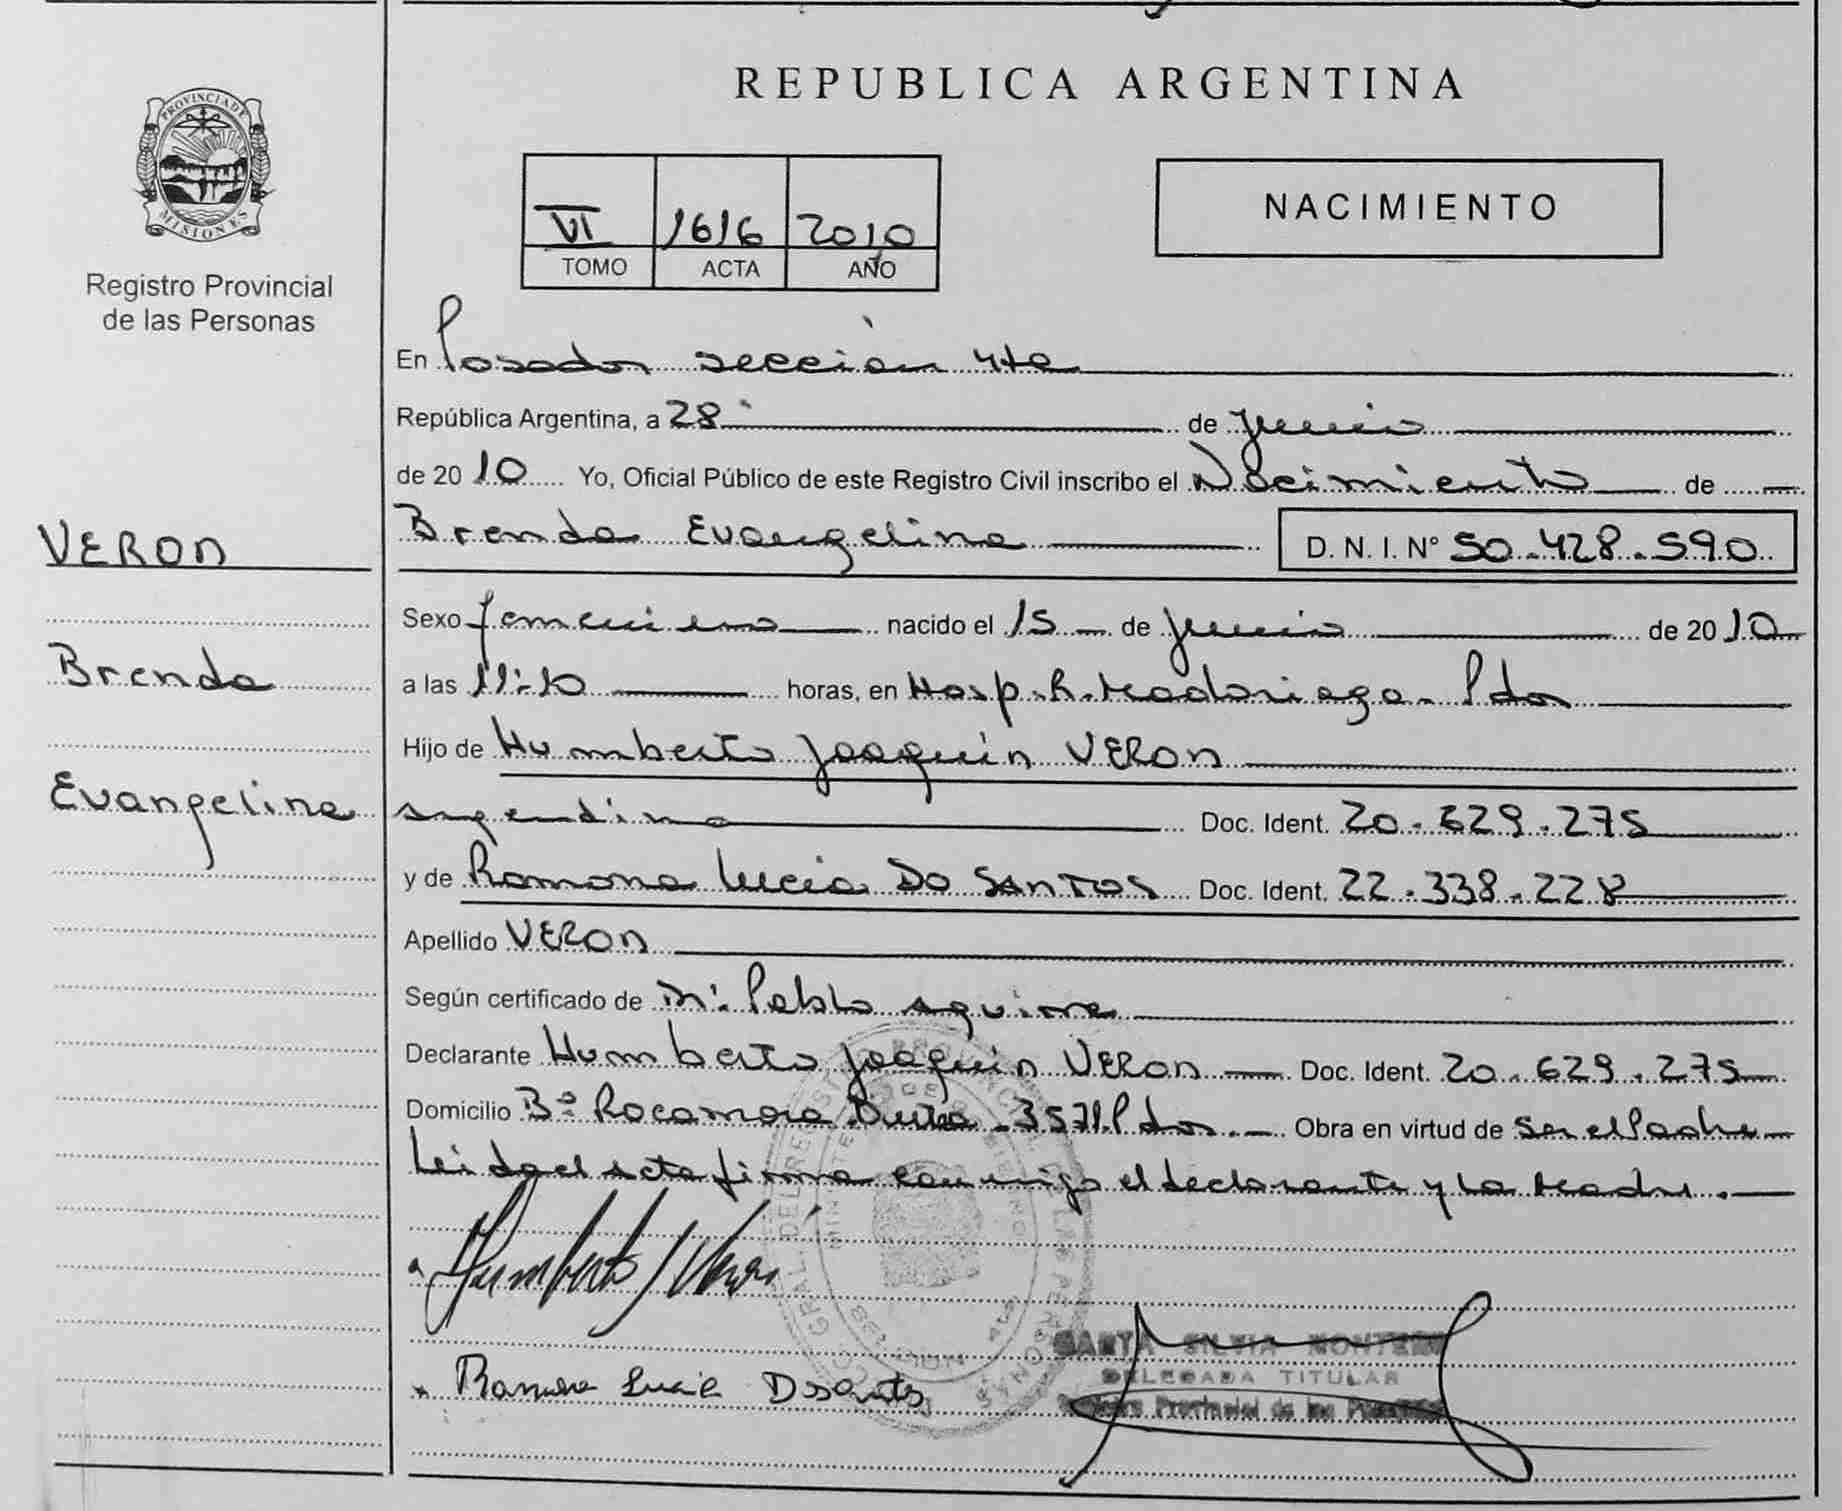 REPUBLICA ARGENTINA
PROVINCIA DE
MISIONES
Registro Provincial
de las Personas
VI 1616 2010
TOMO ACTA AÑO
NACIMIENTO
En Posadas sección 4ta
República Argentina, a 28 de Junio
de 2010 Yo, Oficial Público de este Registro Civil inscribo el Nacimiento de
Brenda Evangelina D. N. I. Nº 50.428.590
VERON
Brenda
Evangelina
Sexo femenino nacido el 15 de Junio de 2010
a las 11:10 horas, en Hosp. R. Madariaga - Pdas
Hijo de Humberto Joaquín VERON
argentino Doc. Ident. 20.629.275
y de Ramona Lucia DO SANTOS Doc. Ident. 22.338.228
Apellido VERON
Según certificado de Dr. Pablo Aguirre
Declarante Humberto Joaquín VERON Doc. Ident. 20.629.275
Domicilio Bº Rocamora 3571 Pdas. Obra en virtud de ser el Padre
Leida el acta firma conmigo el declarante y la Madre.
Humberto J Veron
Ramona Lucia Dosantos
SILVIA
DELEGADA TITULAR
Registro Provincial de las Personas